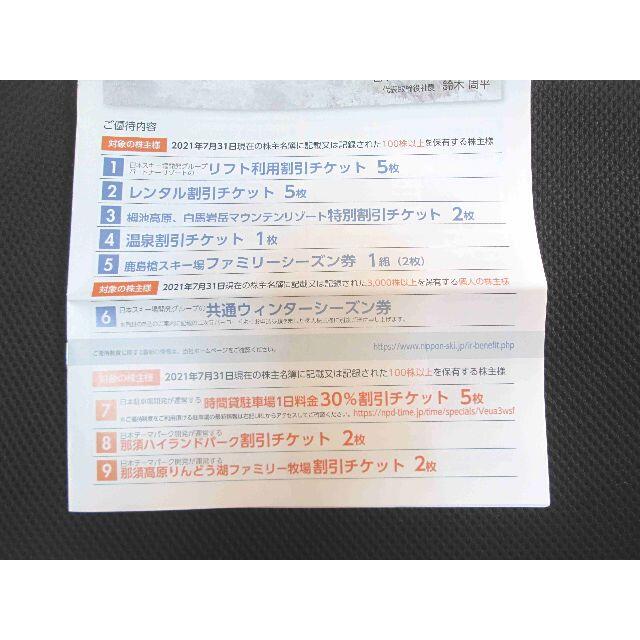 代表取締役社長 鈴木 周平
ご優待内容
対象の株主様 2021年7月31日現在の株主名簿に記載又は記録された100株以上を保有する株主様
1 日本スキー場開発グループ パートナーリゾートの リフト利用割引チケット 5枚
2 レンタル割引チケット 5枚
3 栂池高原、白馬岩岳マウンテンリゾート特別割引チケット 2枚
4 温泉割引チケット 1枚
5 鹿島槍スキー場ファミリーシーズン券 1組（2枚）
対象の株主様 2021年7月31日現在の株主名簿に記載又は記録された3,000株以上を保有する個人の株主様
6 日本スキー場開発グループの 共通ウィンターシーズン券
ご優待制度に関する最新の情報は、当社ホームページをご確認ください。 https://www.nippon-ski.jp/ir-benefit.php
対象の株主様 2021年7月31日現在の株主名簿に記載又は記録された100株以上を保有する株主様
7 日本駐車場開発が運営する 時間貸駐車場1日料金30%割引チケット 5枚
※ご優待制度をご利用頂ける駐車場の最新情報は右記URLからアクセスしてご確認ください。https://npd-time.jp/time/specials/Veua3wsf
8 日本テーマパーク開発が運営する 那須ハイランドパーク割引チケット 2枚
9 日本テーマパーク開発が運営する 那須高原りんどう湖ファミリー牧場 割引チケット 2枚